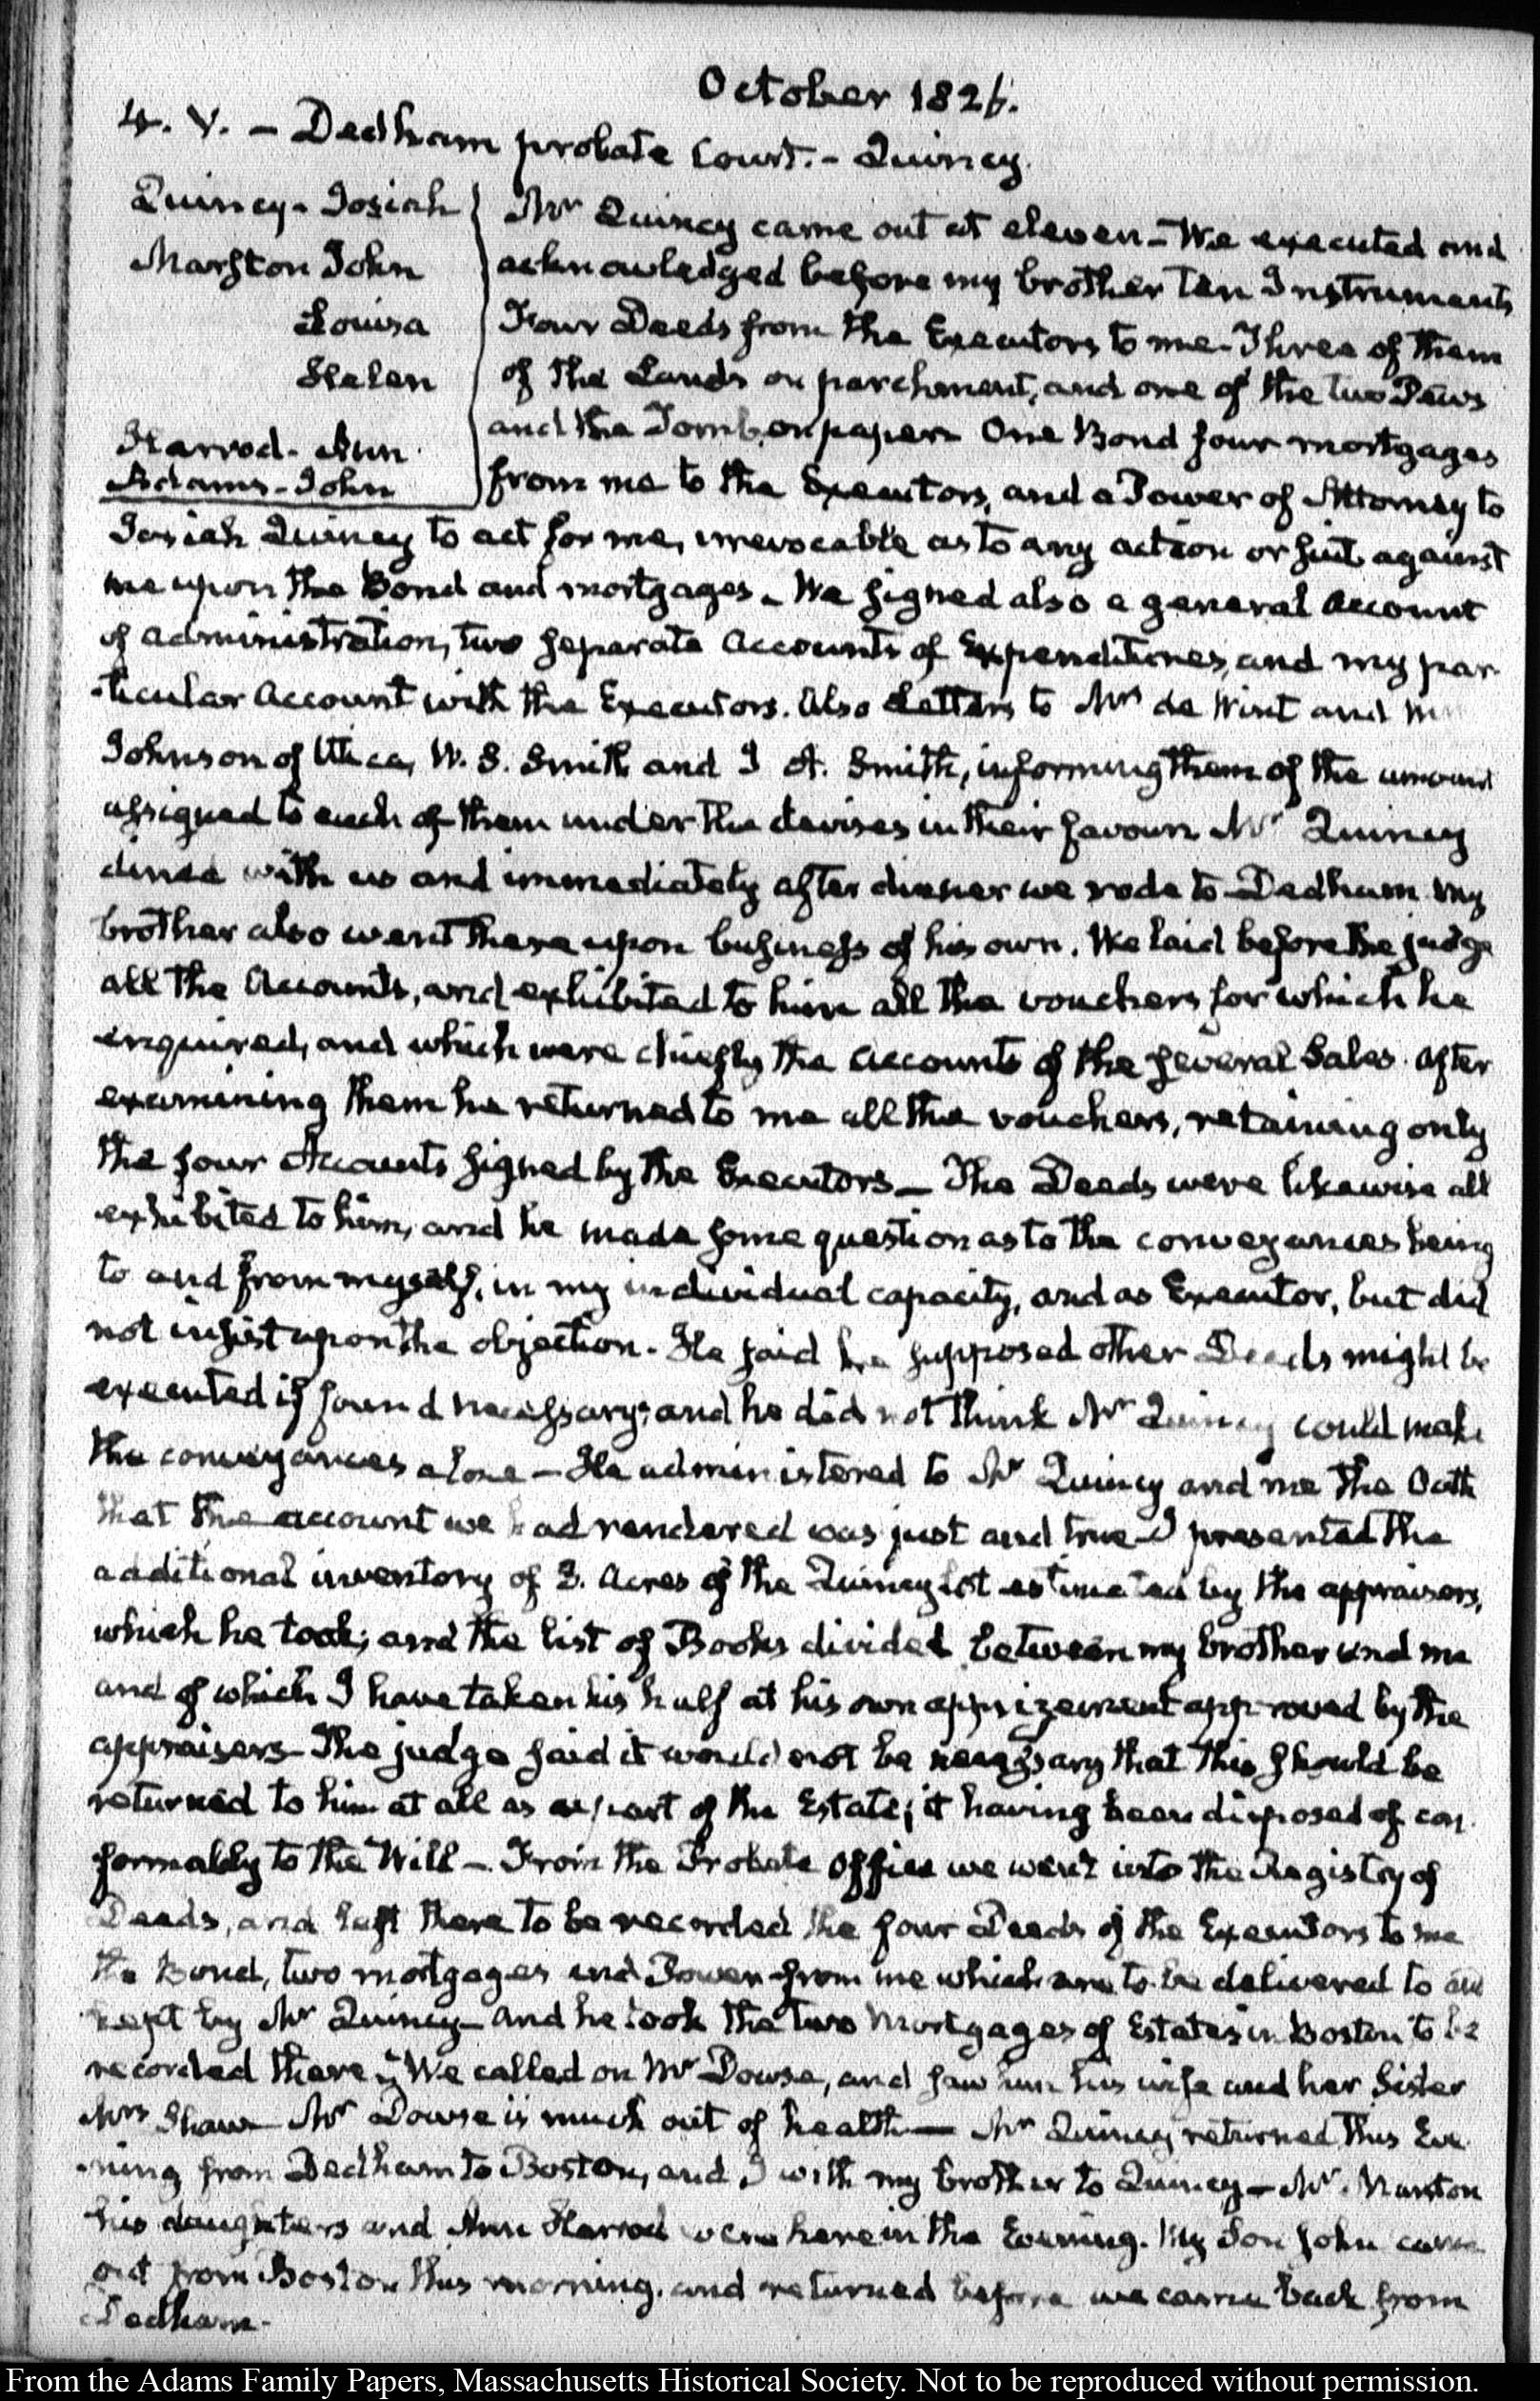 October 1826.
4. V. – Dedham probate Court. – Quincy.
Quincy – Josiah
Marston John
Louisa
Helen
Harrod – Ann
Adams – John
Mr Quincy came out at eleven – We executed and
acknowledged before my brother ten Instruments
Four Deeds from the Executors to me – Three of them
of the Lands on parchment, and one of the two Pews
and the Tomb, on paper. One Bond four mortgages
from me to the Executors, and a Power of Attorney to
Josiah Quincy to act for me, irrevocable as to any action or suit against
me upon the Bond and mortgages. We signed also a general Account
of administration, two separate Accounts of Expenditures, and my par-
ticular Account with the Executors. Also Letters to Mr de Wint and
Johnson of Utica, W. S. Smith and J. A. Smith, informing them of the amount
assigned to each of them under the devises in their favour. Mr Quincy
dined with us and immediately after dinner we rode to Dedham. My
brother also went there upon business of his own. We laid before the judge
all the Accounts, and exhibited to him all the vouchers for which he
enquired, and which were chiefly the Accounts of the several Sales. After
examining them he returned to me all the vouchers, retaining only
the four Accounts signed by the Executors – The Deeds were likewise all
exhibited to him, and he made some question as to the conveyances being
to and from myself, in my individual capacity, and as Executor, but did
not insist upon the objection. He said he supposed other Deeds might be
executed if found necessary; and he did not think Mr Quincy could make
the conveyances alone – He administered to Mr Quincy and me the Oath
that the account we had rendered was just and true – I presented the
additional inventory of 3. Acres of the Quincy lot estimated by the appraisers,
which he took; and the list of Books divided between my brother and me
and of which I have taken his half at his own apprizement approved by the
appraisers – The judge said it would not be necessary that this should be
returned to him at all as a part of the Estate; it having been disposed of con-
formably to the Will – From the Probate Office we went into the Registry of
Deeds, and left there to be recorded the four Deeds of the Executors to me
the Bond, two mortgages and Power from me which are to be delivered to and
kept by Mr Quincy – and he took the two Mortgages of Estates in Boston to be
recorded there. We called on Mr Dowse, and saw him his wife and her Sister
Mrs Shaw – Mr Dowse is much out of health – Mr Quincy returned this Eve-
ning from Dedham to Boston, and I with my brother to Quincy – Mr Marston
his daughters and Ann Harrod were here in the Evening. My Son John came
out from Boston this morning, and returned before we came back from
Dedham –
From the Adams Family Papers, Massachusetts Historical Society. Not to be reproduced without permission.